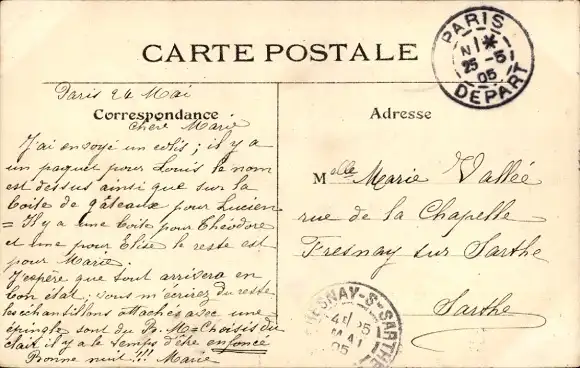 CARTE POSTALE
PARIS
N 1 *
25 -5
05
DEPART
Paris 24 Mai
Correspondance
Chère Marie
J'ai envoyé un colis ; il y a
un paquet pour Louis le nom
est dessus ainsi que sur la
boite de gâteaux pour Lucien
= Il y a une boite pour Théodore
et une pour Elise le reste est
pour Marie.
J'espère que tout arrivera en
bon état ; vous m'écrirez du reste
les échantillons attachés avec une
épingle sont du B. M = Choisis du
clair il y a le temps d'être enfoncé
Bonne nuit !!! Marie
Adresse
Melle Marie Vallée
rue de la Chapelle
Fresnay sur Sarthe
Sarthe
FRESNAY-S-SARTHE
MAI
05